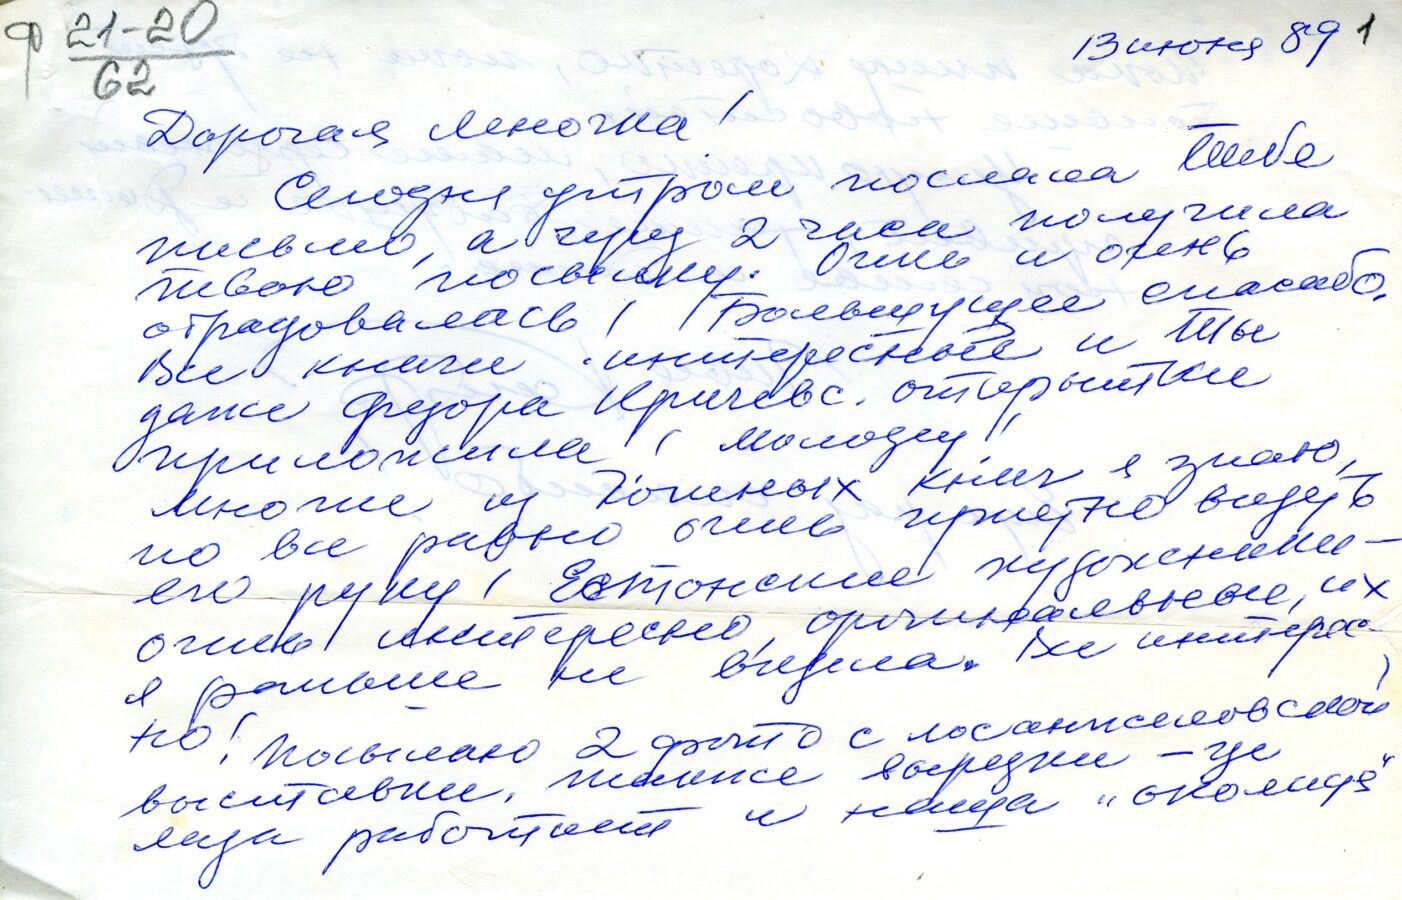 ф 21-20
62
13 июня 89 1
Дорогая Леночка!
Сегодня утром послала Тебе
письмо, а чуз 2 часа получила
твою посылку. Очень и очень
отрадовалась! Большущее спасибо.
Все книги интересные и Ты
даже Федора Кричевс. открытки
приложила! Молодец!
Многие из книг я знаю,
но все равно очень приятно видеть
его руку! Естонские художники —
очень интересно, оригинальные, их
я раньше не видела. Все интерес-
но!
Посылаю 2 фото с лосанжеловской
выставки, также вырезки —
лиза работает и наша "околиця"